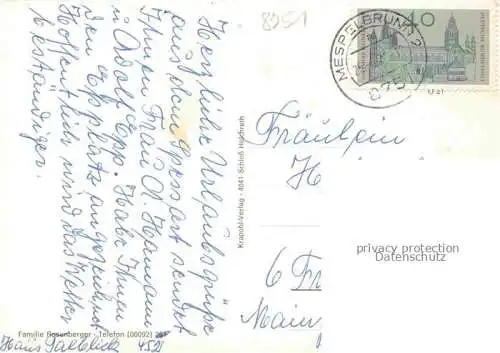 8751
Herzliche Urlaubsgrüße
aus dem Spessart sendet
Ihnen Frau A. Hamann
u. Adolf Epp. Habe Ihnen
den Eßplatz angezeichnet
Hoffentlich wird das Wetter
beständiger.
Familie Rosenberger - Telefon (06092) 251
Haus Talblick 452
Krapohl-Verlag - 4041-Schloß Hülchrath
MESPELBRUNN 2
8751
40
DEUTSCHE BUNDESPOST
Fräulein
6 Fr
Main
privacy protection
Datenschutz